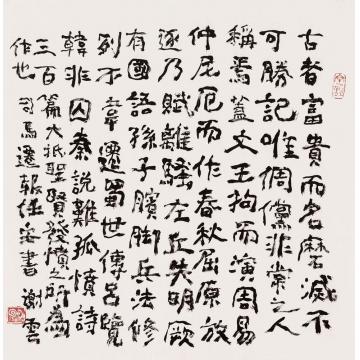 古者富貴而名磨滅不
可勝記唯倜儻非常之人
稱焉蓋文王拘而演周易
仲尼厄而作春秋屈原放
逐乃賦離騷左丘失明厥
有國語孫子臏脚兵法修
列不韋遷蜀世傳呂覽
韓非囚秦說難孤憤詩
三百篇大抵聖賢發憤之所為
作也 司馬遷報任安書 謝雲